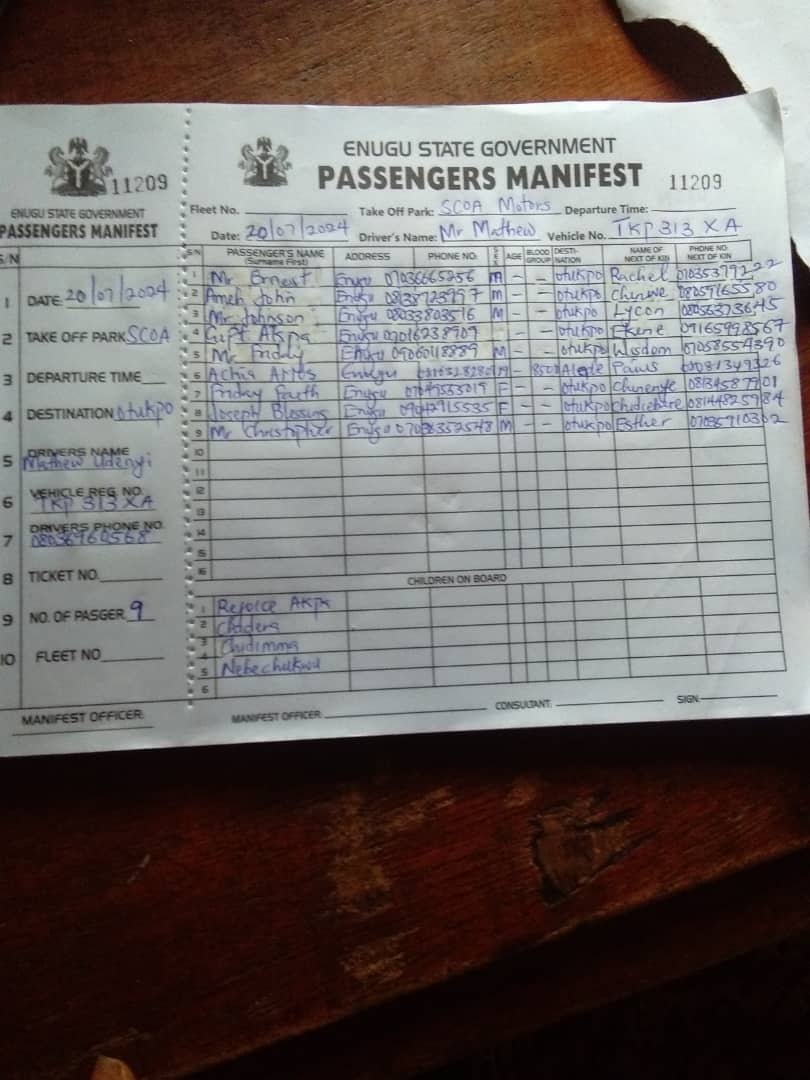 11209
ENUGU STATE GOVERNMENT
PASSENGERS MANIFEST
S/N
1 DATE: 20/07/2024
2 TAKE OFF PARK SCOA
3 DEPARTURE TIME
4 DESTINATION Otukpo
5 DRIVERS NAME
Mathew Udenyi
6 VEHICLE REG NO.
TKP 313 XA
7 DRIVERS PHONE NO.
08036960568
8 TICKET NO.
9 NO. OF PASGER. 9
10 FLEET NO
MANIFEST OFFICER:
ENUGU STATE GOVERNMENT
PASSENGERS MANIFEST 11209
Fleet No. Take Off Park: SCOA Motors Departure Time:
Date: 20/07/2024 Driver's Name: Mr Mathew Vehicle No. TKP 313 XA
S/N PASSENGER'S NAME (Surname First) ADDRESS PHONE NO: SEX AGE BLOOD GROUP DESTI-NATION NAME OF NEXT OF KIN PHONE NO: NEXT OF KIN
1 Mr Ernest Enugu 07036665256 M - - Otukpo Rachel
2 Ameh John Enugu 08138723997 M - - Otukpo 08059165580
3 Mr Johnson Enugu 08033803516 M - - Otukpo Lycon
4 Gift Akpa Enugu 09016238909 - - Otukpo Ekene 09165998567
5 Mr Friday Enugu 09060118889 M - - Otukpo Wisdom 07058554390
6 Enugu M -
7 Friday Faith Enugu F - - Otukpo Chinenye 08134587701
8 Joseph Blessing Enugu 09042915535 F - - Otukpo Chidiebere 08144825984
9 Mr Christopher Enugu M - - Otukpo Esther 07035910302
10
11
12
13
14
15
16
CHILDREN ON BOARD
1 Rejoice Akpa
2 Chidera
3 Chidimma
4
5 Nebechukwu
6
MANIFEST OFFICER: CONSULTANT: SIGN: